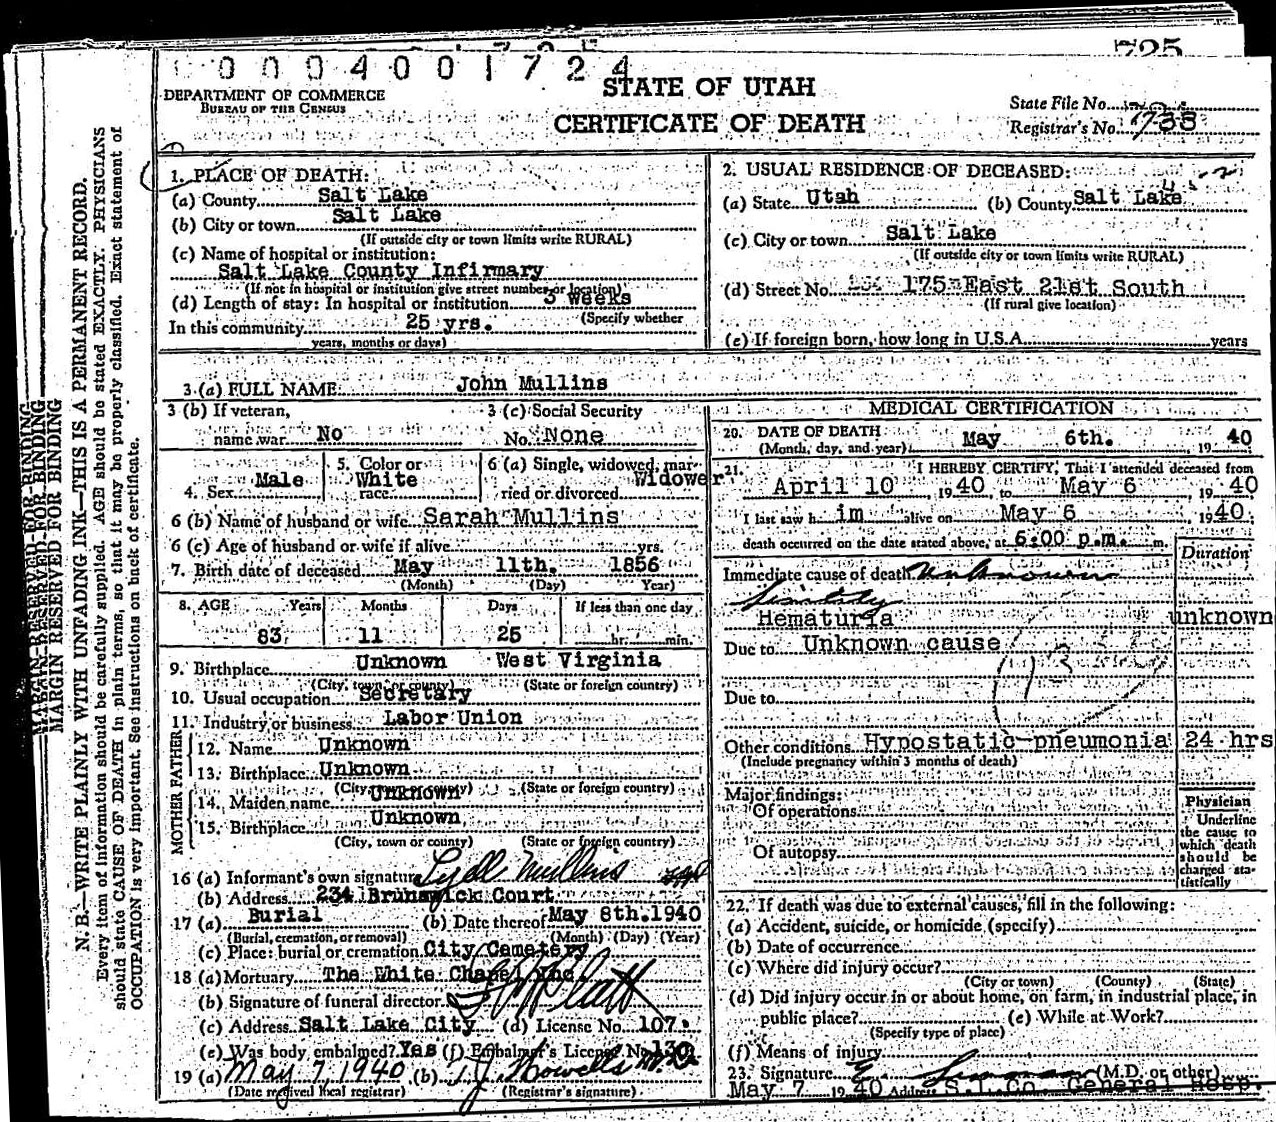 725
0004001724
STATE OF UTAH
DEPARTMENT OF COMMERCE
BUREAU OF THE CENSUS
CERTIFICATE OF DEATH
State File No.
Registrar's No. 733
MARGIN RESERVED FOR BINDING
N. B.—WRITE PLAINLY WITH UNFADING INK—THIS IS A PERMANENT RECORD.
Every item of information should be carefully supplied. AGE should be stated EXACTLY. PHYSICIANS
should state CAUSE OF DEATH in plain terms, so that it may be properly classified. Exact statement of
OCCUPATION is very important. See instructions on back of certificate.
1. PLACE OF DEATH:
(a) County Salt Lake
(b) City or town Salt Lake
(If outside city or town limits write RURAL)
(c) Name of hospital or institution:
Salt Lake County Infirmary
(If not in hospital or institution give street number or location)
(d) Length of stay: In hospital or institution 3 weeks
(Specify whether
In this community 25 yrs.
years, months or days)
2. USUAL RESIDENCE OF DECEASED:
(a) State Utah (b) County Salt Lake
(c) City or town Salt Lake
(If outside city or town limits write RURAL)
(d) Street No. 175 East 21st South
(If rural give location)
(e) If foreign born, how long in U.S.A. years
3 (a) FULL NAME John Mullins
3 (b) If veteran, 3 (c) Social Security
name war No No. None
4. Sex Male 5. Color or race White 6 (a) Single, widowed, married or divorced Widower
6 (b) Name of husband or wife Sarah Mullins
6 (c) Age of husband or wife if alive yrs.
7. Birth date of deceased May 11th. 1856
(Month) (Day) Year)
8. AGE Years Months Days If less than one day
83 11 25 hr. min.
9. Birthplace Unknown West Virginia
(City, town or county) (State or foreign country)
10. Usual occupation Secretary
11. Industry or business Labor Union
FATHER
12. Name Unknown
13. Birthplace Unknown
(City, town or county) (State or foreign country)
MOTHER
14. Maiden name Unknown
15. Birthplace Unknown
(City, town or county) (State or foreign country)
16 (a) Informant's own signature Mullins
(b) Address 234 Brunswick Court
17 (a) Burial (b) Date thereof May 8th. 1940
(Burial, cremation, or removal) (Month) (Day) (Year)
(c) Place: burial or cremation City Cemetery
18 (a) Mortuary The White Chapel Inc
(b) Signature of funeral director
(c) Address Salt Lake City (d) License No. 107
(e) Was body embalmed? Yes (f) Embalmer's License No. 130
19 (a) May 7, 1940 (b) T. J. Howells
(Date received local registrar) (Registrar's signature)
MEDICAL CERTIFICATION
20. DATE OF DEATH
(Month, day, and year) May 6th. 1940
21. I HEREBY CERTIFY, That I attended deceased from
April 10, 1940, to May 6, 1940
I last saw him alive on May 6, 1940
death occurred on the date stated above, at 6:00 p.m. m.
Duration
Immediate cause of death Unknown
Senility
Hematuria unknown
Due to Unknown cause
Due to
Other conditions Hypostatic pneumonia 24 hrs
(Include pregnancy within 3 months of death)
Major findings:
Of operations
Of autopsy
Physician
Underline
the cause to
which death
should be
charged statistically
22. If death was due to external causes, fill in the following:
(a) Accident, suicide, or homicide (specify)
(b) Date of occurrence
(c) Where did injury occur?
(City or town) (County) (State)
(d) Did injury occur in or about home, on farm, in industrial place, in
public place? (e) While at Work?
(Specify type of place)
(f) Means of injury
23. Signature (M.D. or other)
May 7 1940 Address S.L. Co. General Hosp.